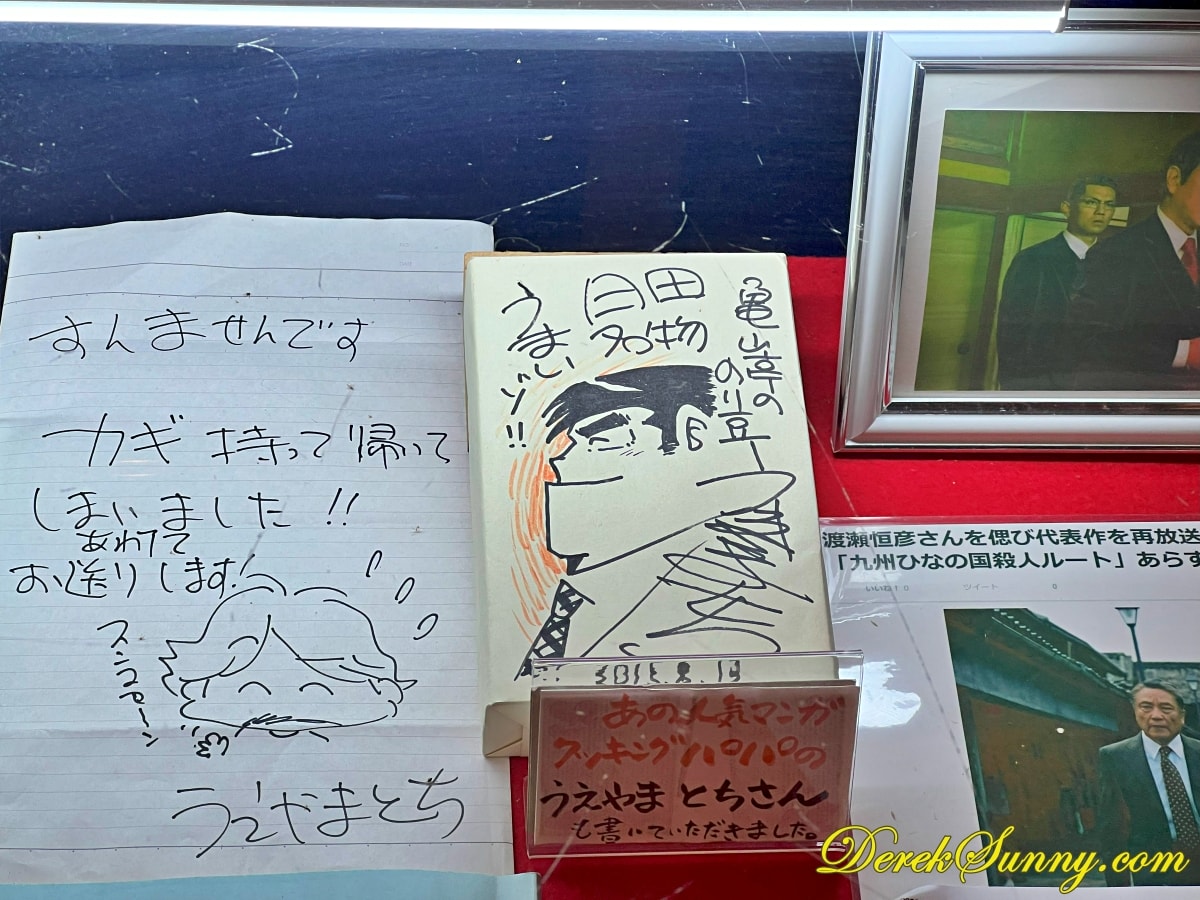 すんませんです
カギ 持って帰って
しまいました!!
あわてて
お送りします!
スンマセーン
うえやまとち
亀山亭の
のり豆
日田
名物
うまいゾ!!
あの人気マンガ
クッキングパパの
うえやま とちさん
も書いていただきました。
渡瀬恒彦さんを偲び代表作を再放送
「九州ひなの国殺人ルート」あらす
いいね 10 ツイート 0
DerekSunny.com